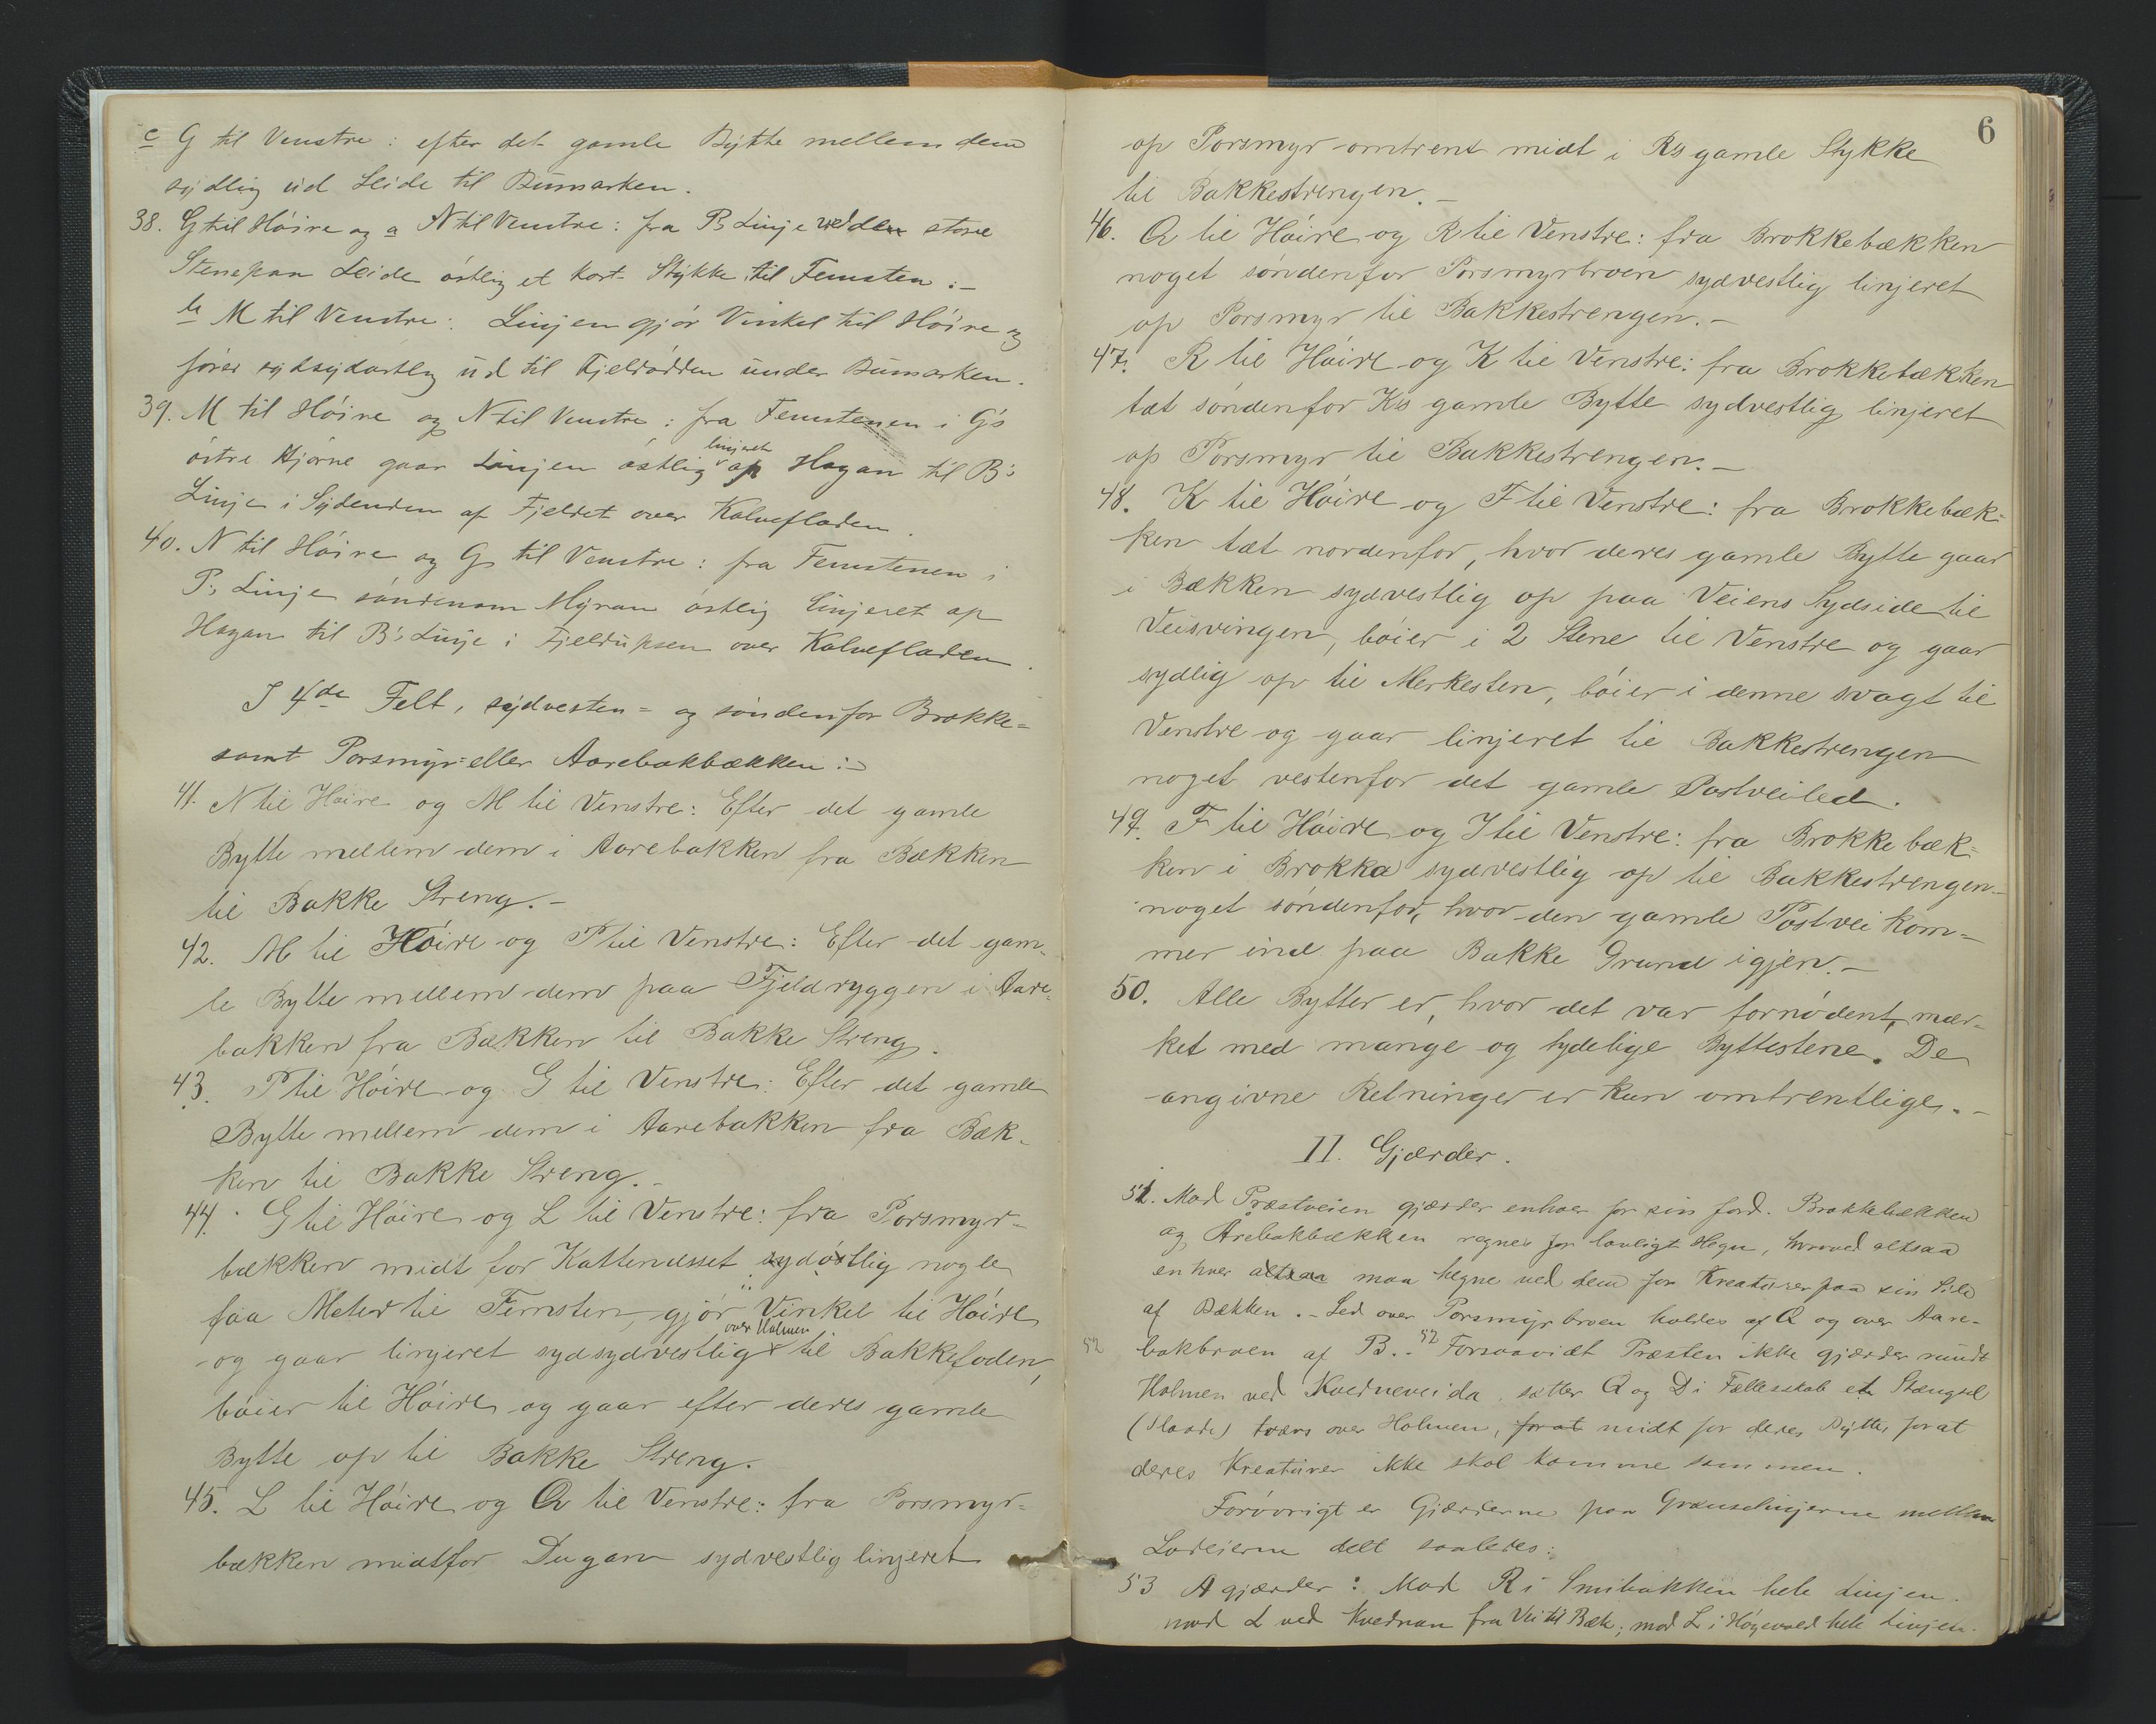 c G til Venstre: efter det gamle Bytte mellem dem
sydlig ud Leide til Bumarken.
38. G til Høire og a N til Venstre: fra P's Linje ved den store
Stenepan Leide østlig et kort Stykke til Femsten :-
b M til Venstre: Linjen gjør Vinkel til Høire og
fører sydsydøstlig ud til Fjeldrødden under Bumarken.
39. M til Høire og N til Venstre: fra Femstenen i G's
østre Hjørne gaar Linjen østlig linjeret op Hagan til B's
Linje i Sydenden af Fjeldet over Kalvefladen.
40. N til Høire og G til Venstre: fra Femstenen i
P's Linje søndenom Myran østlig linjeret op
Hagan til B's Linje i Fjeldupsen over Kalvefladen.
I 4de Felt, sydvesten= og søndenfor Brokke=
samt Porsmyr= eller Aarebakbækken :-
41. N til Høire og M til Venstre: Efter det gamle
Bytte mellem dem i Aarebakken fra Bækken
til Bakke Streng.-
42. M til Høire og P til Venstre: Efter det gam-
le Bytte mellem dem paa Fjeldryggen i Aare-
bakken fra Bækken til Bakke Streng.
43. P til Høire og G til Venstre: Efter det gamle
Bytte mellem dem i Aarebakken fra Bæk-
ken til Bakke Streng.-
44. G til Høire og L til Venstre: fra Porsmyr-
bækken midt for Kattenesset sydøstlig nogle
faa Meter til Femsten, gjør Vinkel til Høire
og gaar linjeret sydsydvestlig over Holmen til Bakkefoden,
bøier til Høire og gaar efter deres gamle
Bytte op til Bakke Streng.
45. L til Høire og Q til Venstre: fra Porsmyr=
bækken midtfor Dugan sydvestlig linjeret
6
op Porsmyr omtrent midt i R's gamle Stykke
til Bakkestrengen.-
46. Q til Høire og R til Venstre: fra Brokkebækken
noget søndenfor Porsmyrbroen sydvestlig linjeret
op Porsmyr til Bakkestrengen.-
47. R til Høire og K til Venstre: fra Brokkebækken
tæt søndenfor K's gamle Bytte sydvestlig linjeret
op Porsmyr til Bakkestrengen.-
48. K til Høire og F til Venstre: fra Brokkebæk=
ken tæt nordenfor, hvor deres gamle Bytte gaar
i Bækken sydvestlig op paa Veiens Sydside til
Veisvingen, bøier i 2 Stene til Venstre og gaar
sydlig op til Merkesten, bøier i denne svagt til
Venstre og gaar linjeret til Bakkestrengen
noget vestenfor det gamle Postveiled.
49. F til Høire og I til Venstre: fra Brokkebæk=
ken i Brokka sydvestlig op til Bakkestrengen
noget søndenfor, hvor den gamle Postvei kom=
mer ind paa Bakke Grund igjen.-
50. Alle Bytter er, hvor det var fornødent, mær-
ket med mange og tydelige Byttestene. De
angivne Retninger er kun omtrentlige.-
II. Gjærder.
51. Mod Præstveien gjærder enhver for sin Jord. Brokkebækken
og Årebakbækken regnes for lovligt Hegn, hvorved altsaa
enhver altsaa maa hegne ved dem for Kreaturer paa sin Side
af Bækken.- Led over Porsmyrbroen holdes af Q og over Aare-
52 bakbroen af B.- 52 Forsaavidt Præsten ikke gjærder rundt
Holmen ved Kvedneveida, sætter Q og D i Fællesskab et Stængsel
(Slaade) tværs over Holmen, for at midt for deres Bytte, for at
deres Kreaturer ikke skal komme sammen.
Forøvrigt er Gjærderne paa Grænselinjerne mellem
Lodeierne delt saaledes:
53 A gjærder: Mod R i Smibakken hele Linjen.
mod L ved Kvednan fra Vei til Bæk; mod L i Høgevold hele Linjen.